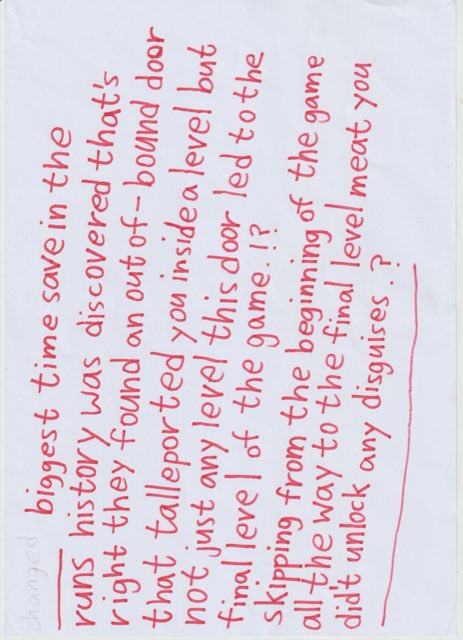 changed
biggest time save in the
runs history was discovered that's
right they found an out of-bound door
that talleported you inside a level but
not just any level this door led to the
final level of the game.!?
skipping from the beginning of the game
all the way to the final level meat you
did't unlock any disguises.?